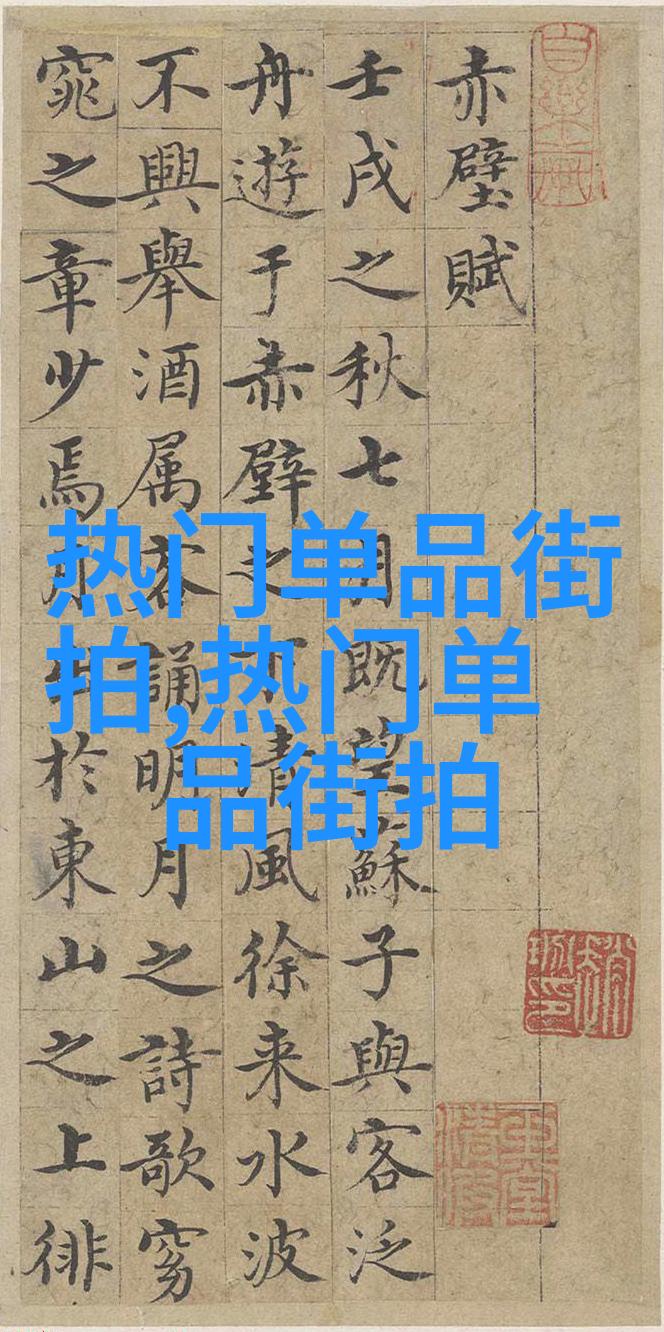 赤壁賦
壬戌之秋七月既望蘇子與客泛
舟遊于赤壁之下清風徐来水波
不興舉酒属客誦明月之詩歌窈
窕之章少焉月出於東山之上徘
热门单品街
拍,热门单
品街拍